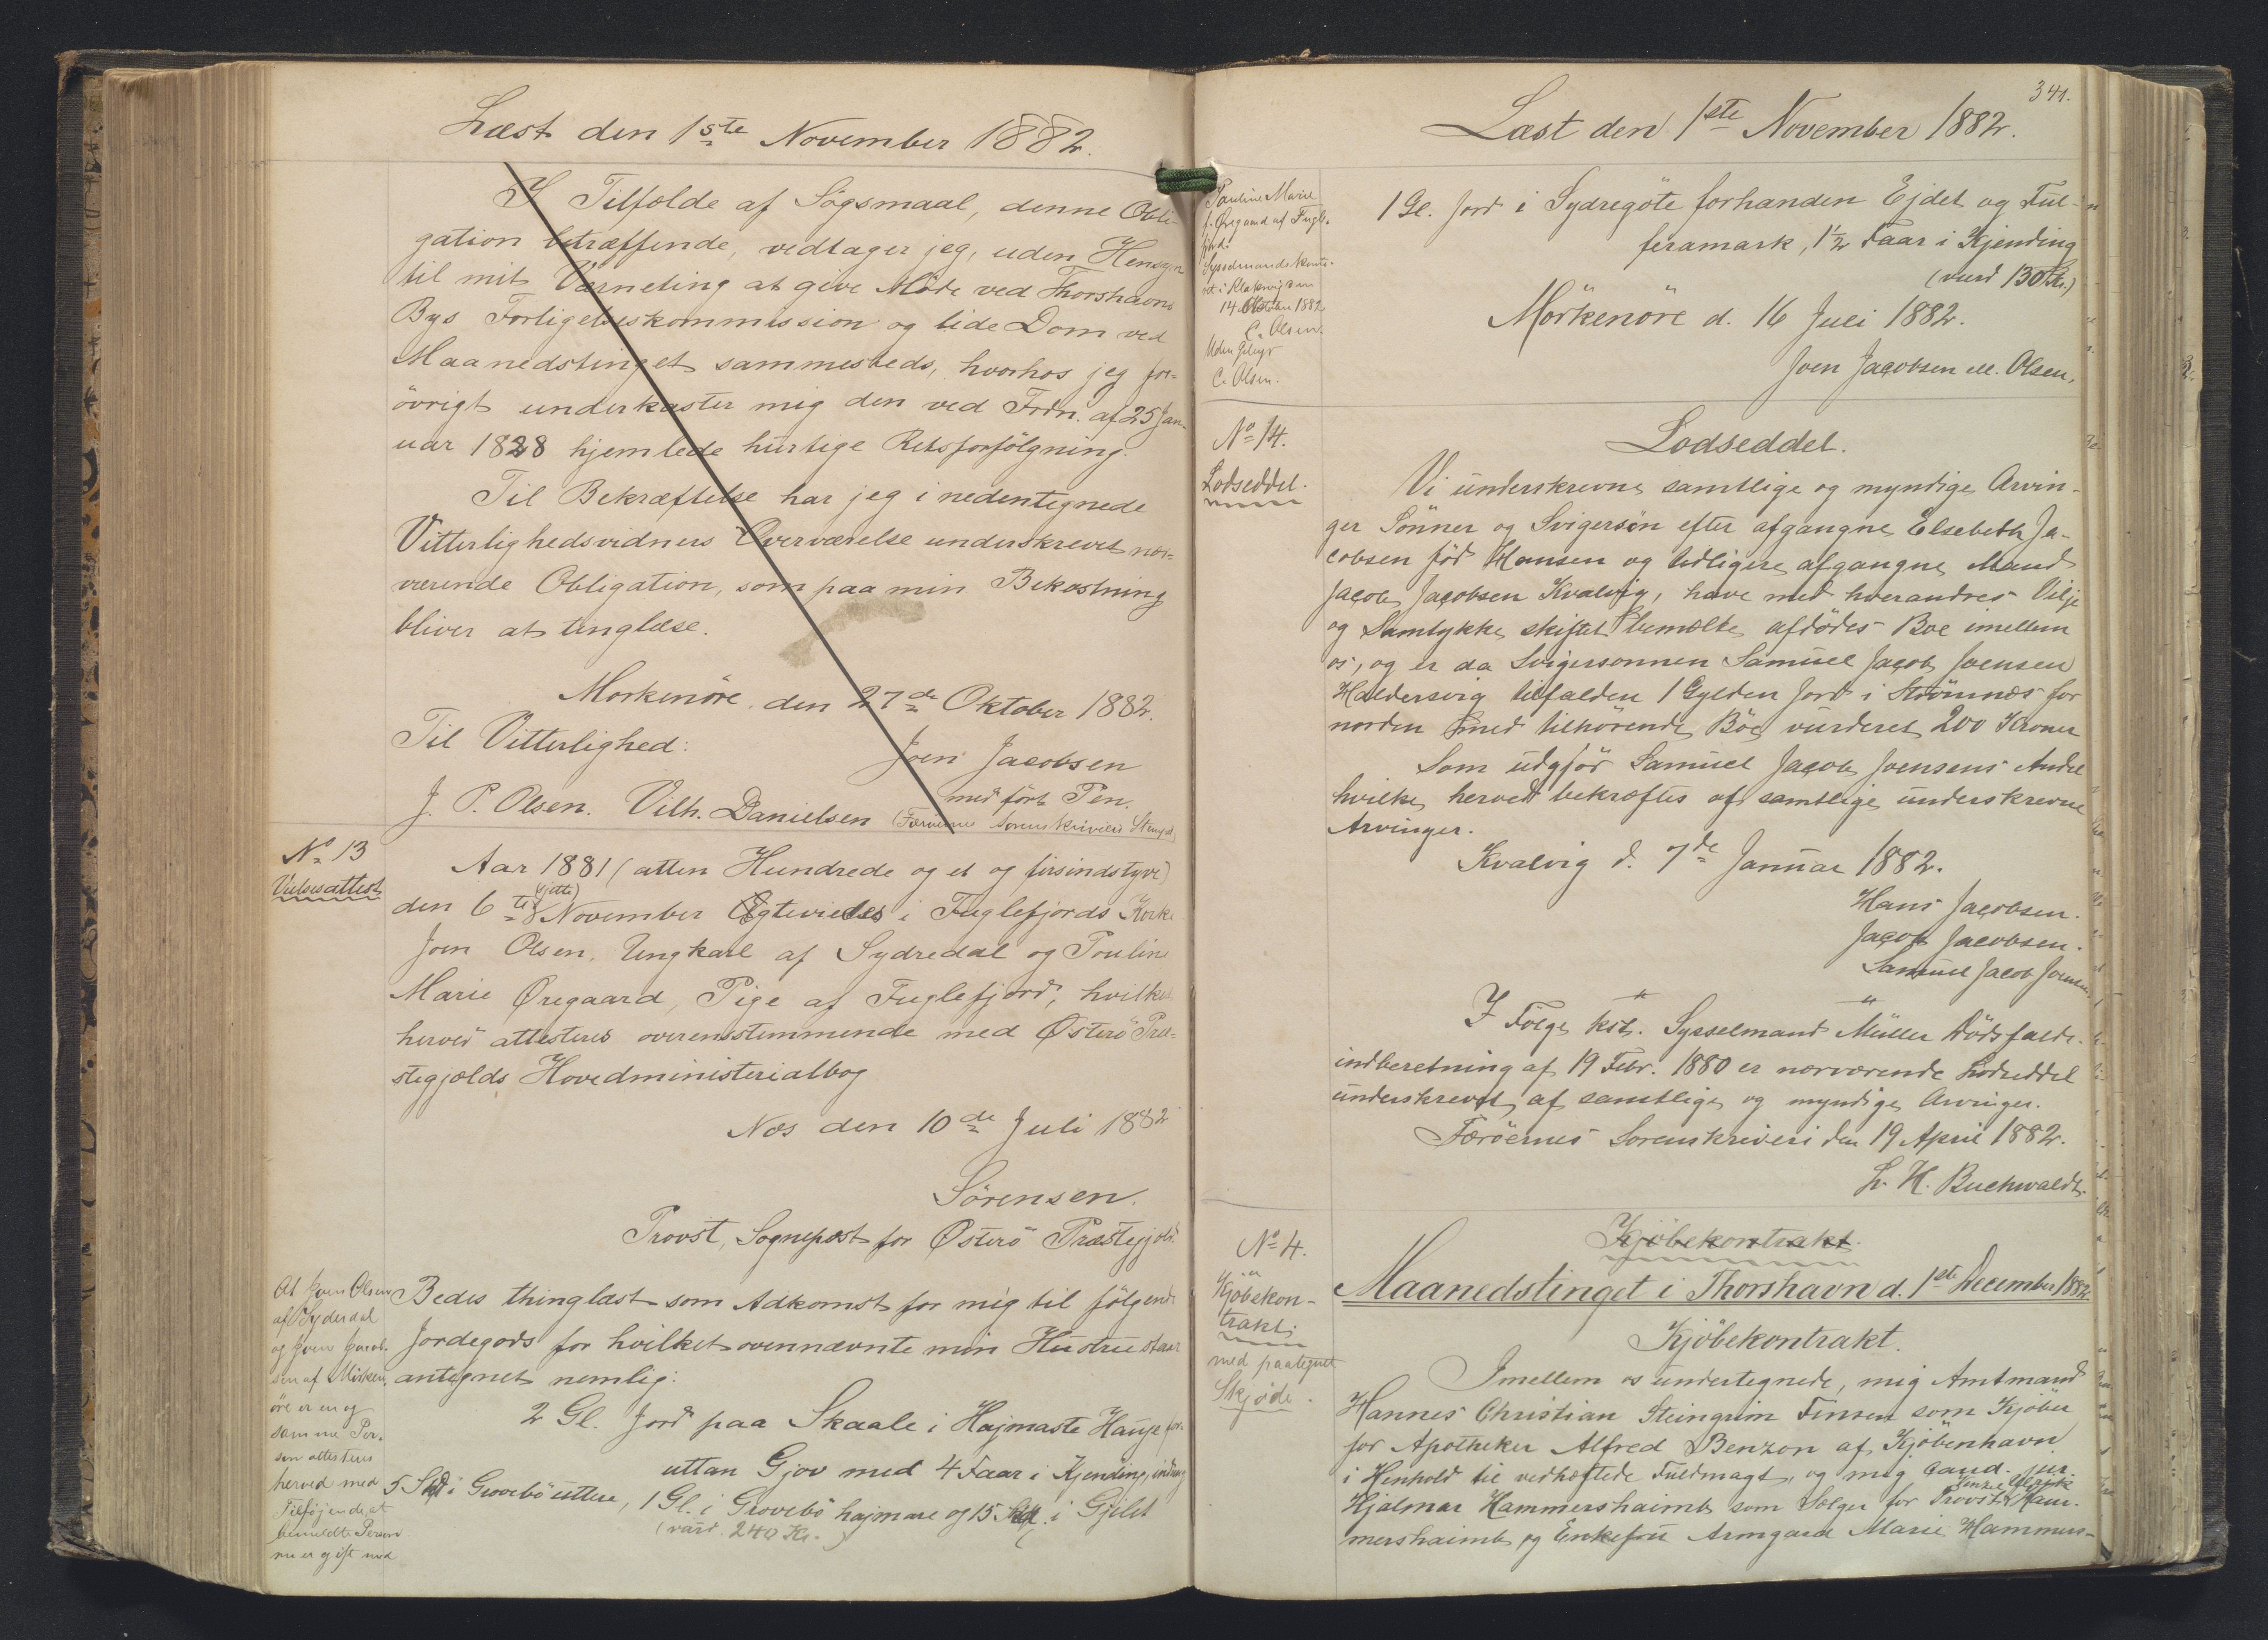 Læst den 1ste November 1882.
I Tilfælde af Søgsmaal, denne Obli-
gation betræffende, vedtager jeg, uden Hensyn
til mit Værneting at give Møde ved Thorshavns
Bys Forligelseskommission og lide Dom ved
Maanedstinget sammesteds, hvorhos jeg for-
øvrigt underkaster mig den ved Frdn. af 25 Jan-
uar 1828 hjemlede hurtige Retsforfølgning.
Til Bekræftelse har jeg i nedentegnede
Vitterlighedsvidners Overværelse underskrevet nær-
værende Obligation, som paa min Bekostning
bliver at tinglæse.
Morkenøre, den 27de Oktober 1882.
Til Vitterlighed:
Joen Jacobsen
med ført Pen.
J. P. Olsen. Vilh. Danielsen (Færøernes Sorenskriveris Stempel)
No 13
Vielsesattest
Aar 1881 (atten Hundrede og et og firsindstyve)
den 6te (sjette) November Egteviedes i Fuglefjords Kirke
Joen Olsen, Ungkarl af Sydredal og Pouline
Marie Øregaard, Pige af Fuglefjord, hvilket
herved attesteres overensstemmende med Østerø Præ-
stegjælds Hovedministerialbog
Næs den 10de Juli 1882
Sørensen.
Provst, Sognepræst for Østerø Præstegjæld.
Bedes thinglæst som Adkomst for mig til følgende
Jordegods for hvilket ovennævnte min Hustru staar
antegnet nemlig:
2 Gl. Jord paa Skaale i Hajmaste Hauge for-
uttan Gjov med 4 Faar i Kjending,
5 Skd i Groveбø uttere, 1 Gl. i Grovebø hajmare og 15 Skd. i Gjilet
(vurd. 240 Kr.)
At Joen Olsen
af Syderdal
og Joen Jacob-
sen af Mörken-
öre er en og
samme Per-
son attesteres
herved med
Tilføjende at
bemeldte Person
nu er gift med
341.
Læst den 1ste November 1882.
Pauline Marie
f. Øregaard af Fugle-
fjord.
Sysselmandskont-
ret i Klaksvig den
14 Oktober 1882
C. Olsen.
Uden Gebyr
C. Olsen.
1 Gl. Jord i Sydregøte forhanden Ejdet og Ful-
feramark, 1½ Faar i Kjending
(vurd 130 Kr.)
Mörkenöre d. 16 Juli 1882.
Joen Jacobsen ell. Olsen.
No 14.
Lodseddel.
Lodseddel.
Vi underskrevne samtlige og myndige Arvin-
ger Sønner og Svigersøn efter afgangne Elsebeth Ja-
cobsen fød Hansen og tidligere afgangne Mand
Jacob Jacobsen Kvalvig, have med hverandres Vilje
og Samtykke skiftet bemeldte afdødes Boe imellem
os, og er da Svigersønnen Samuel Jacob Joensen
Haldersvig tilfalden 1 Gylden Jord i Strömnæs for
norden med tilhørende Bøe vurderet 200 Kroner
Som udgjør Samuel Jacob Joensens Andel
hvilke herved bekræftes af samtlige underskrevne
Arvinger.
Kvalvig d. 7de Januar 1882.
Hans Jacobsen.
Jacob Jacobsen.
Samuel Jacob Joensen
I Følge kst. Sysselmand Müller Dødsfalds-
indberetning af 19 Febr. 1880 er nærværende Lodseddel
underskrevet af samtlige og myndige Arvinger.
Færöernes Sorenskriveri den 19 April 1882.
L. H. Buchwaldt.
Kjøbekontrakt.
Maanedstinget i Thorshavn d. 1ste December 1882
No 4.
Kjøbekon-
trakt
med paategnet
Skjøde.
Kjøbekontrakt.
Imellem os undertegnede, mig Amtmand
Hannes Christian Steingrim Finsen som Kjøber
for Apotheker Alfred Benzon af Kjøbenhavn
i Henhold til vedhæftede Fuldmagt, og mig Cand. jur.
Hjalmar Hammershaimb som Sælger for Provst Venzel Ulrik Ham-
mershaimb og Enkefru Armgard Marie Hammers-